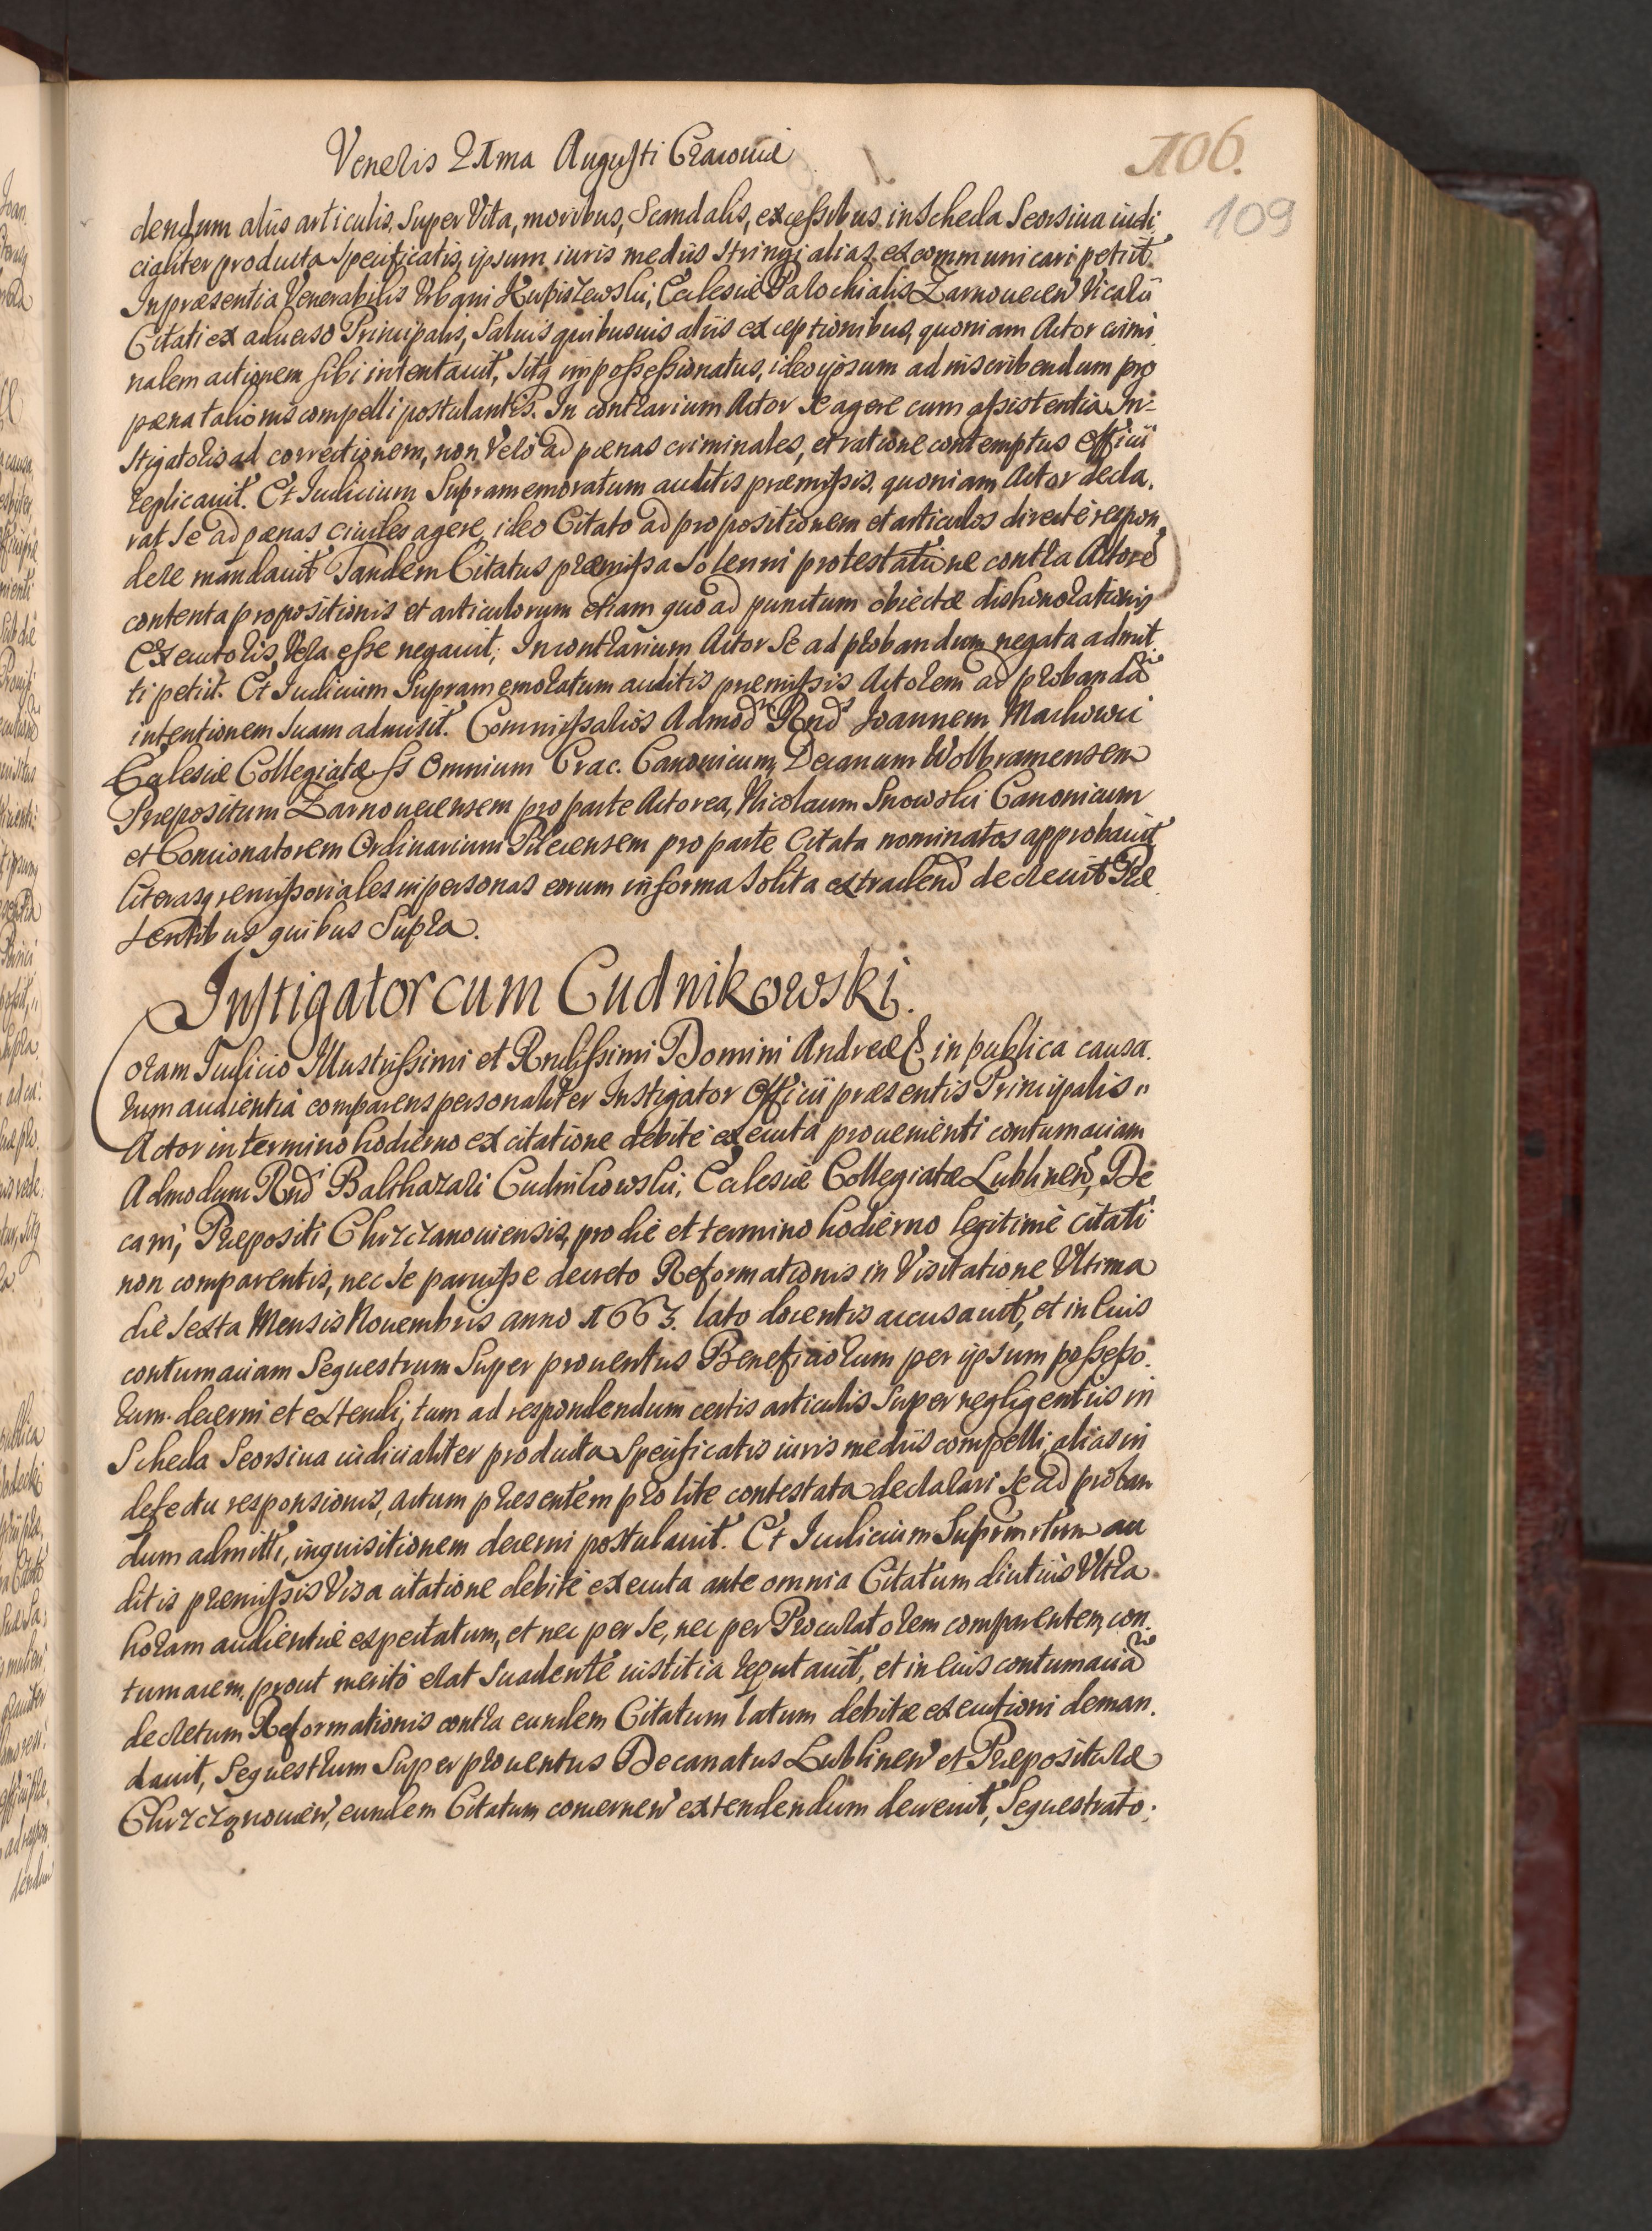 Veneris 21ma Augusti Cracoviæ
106.
109
dendum aliis articulis, super Vita, moribus, Scandalis, excessibus in Scheda Seorsiva iudi
cialiter producta Specificatis, ipsum iuris mediis stringi alias excommunicari petiit.
In præsentia Venerabilis Urbani Kupiszewski, Ecclesiæ Parochialis Zarnovecen Vicarii
Citati ex adverso Principalis, Salvis quibusvis aliis exceptionibus, quoniam Actor crimi
nalem actionem sibi intentauit, Sitq impossessionatus, ideo ipsum ad inscribendum pro
pœna talionis compelli postulantis. In contrarium Actor se agere cum assistentia In-
stigatoris ad correctionem, non Vero ad pœnas criminales, et ratione contemptus Officii
replicauit. Et Iudicium Supramemoratum auditis præmissis, quoniam Actor decla,
rat se ad pœnas ciuiles agere, ideo Citato ad propositionem et articulos directe respon
dere mandauit Tandem Citatus præmissa Solenni protestatione contra Actore
contenta propositionis et articulorum etiam quo ad punctum obiectæ dishonorationis
Executoris, Vera esse negauit, In contrarium Actor Se ad probandum negata admit
ti petiit. Et Iudicium Supramemoratum auditis præmissis Actorem ad probanda
intentionem suam admisit. Commissarios Admod Rnd Joannem Markowic
Ecclesiæ Collegiatæ SS Omnium Crac. Canonicum, Decanum Wolbramensem
Præpositum Zarnoueciensem pro parte Actorea, Nicolaum Snowski Canonicum
et Concionatorem Ordinarium Pilecensem pro parte Citata nominatos approbauit
literasq remissoriales in personas eorum in forma Solita extradend decreuit Præ
sentibus quibus Supra.
Instigator cum Cudnikowski.
Coram Iudicio Illustrissimi et Rndissimi Domini Andreæ & in publica causa
rum audientia comparens personaliter Instigator Officii præsentis Principalis
Actor in termino hodierno ex citatione debite executa prouenienti contumaciam
Admodum Rnd Balthazari Cudnikowski, Ecclesiæ Collegiatæ Lublinen, De
cani, Præpositi Chrzczanouiensis, pro die et termino hodierno legitime citati
non comparentis, nec se paruisse decreto Reformationis in Visitatione Ultima
die Sexta Mensis Nouembris anno 1663. lato docentis accusauit, et in Eius
contumaciam Sequestrum Super prouentus Beneficiorum per ipsum possesso.
rum decerni et extendi, tum ad respondendum certis articulis Super negligentiis in
Scheda Seorsiua iudicialiter producta Specificatis iuris mediis compelli, alias in
defectu responsionis, actum præsentem pro lite contestata declarari Se ad proban
dum admitti, inquisitionem decerni postulauit. Et Iudicium Suprmrtum au
ditis præmissis Visa citatione debite executa ante omnia Citatum diutius Ultra
horam audientiæ expectatum, et nec per Se, nec per Procuratorem comparentem, con
tumacem, prout merito erat Suadente iustitia reputauit, et in Eius contumacia
decretum Reformationis contra eundem Citatum latum debitæ executioni deman.
dauit, Sequestrum Super prouentus Decanatus Lublinen et Præposituræ
Chrzczanouien, eundem Citatum concernen extendendum decreuit, Sequestrato;